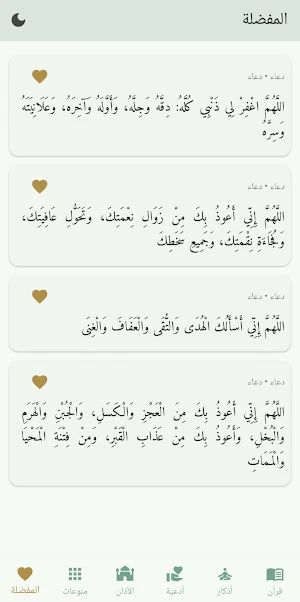 المفضلة
دعاء • دعاء
اللَّهُمَّ اغْفِرْ لِي ذَنْبِي كُلَّهُ: دِقَّهُ وَجِلَّهُ، وَأَوَّلَهُ وَآخِرَهُ، وَعَلَانِيَتَهُ
وَسِرَّهُ
دعاء • دعاء
اللَّهُمَّ إِنِّي أَعُوذُ بِكَ مِنْ زَوَالِ نِعْمَتِكَ، وَتَحَوُّلِ عَافِيَتِكَ،
وَفُجَاءَةِ نِقْمَتِكَ، وَجَمِيعِ سَخَطِكَ
دعاء • دعاء
اللَّهُمَّ إِنِّي أَسْأَلُكَ الْهُدَى وَالتُّقَى وَالْعَفَافَ وَالْغِنَى
دعاء • دعاء
اللَّهُمَّ إِنِّي أَعُوذُ بِكَ مِنَ الْعَجْزِ وَالْكَسَلِ، وَالْجُبْنِ وَالْهَرَمِ
وَالْبُخْلِ، وَأَعُوذُ بِكَ مِنْ عَذَابِ الْقَبْرِ، وَمِنْ فِتْنَةِ الْمَحْيَا
وَالْمَمَاتِ
قرآن
أذكار
أدعية
الأذان
منوعات
المفضلة